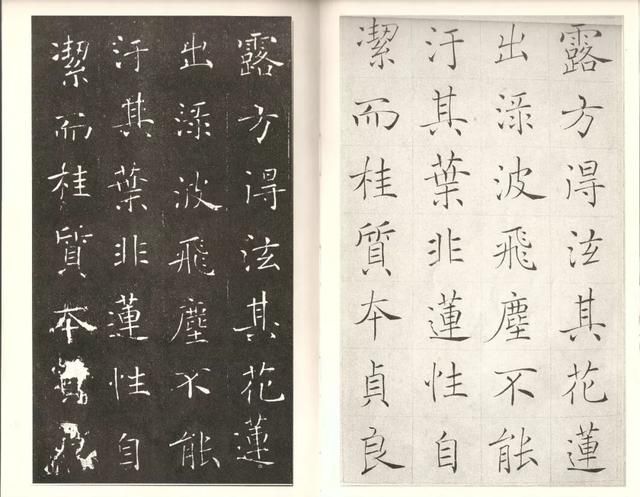 露方得泫其花蓮
出淥波飛塵不能
汙其葉非蓮性自
潔而桂質本貞良
露方得泫其花蓮
出淥波飛塵不能
汙其葉非蓮性自
潔而桂質本